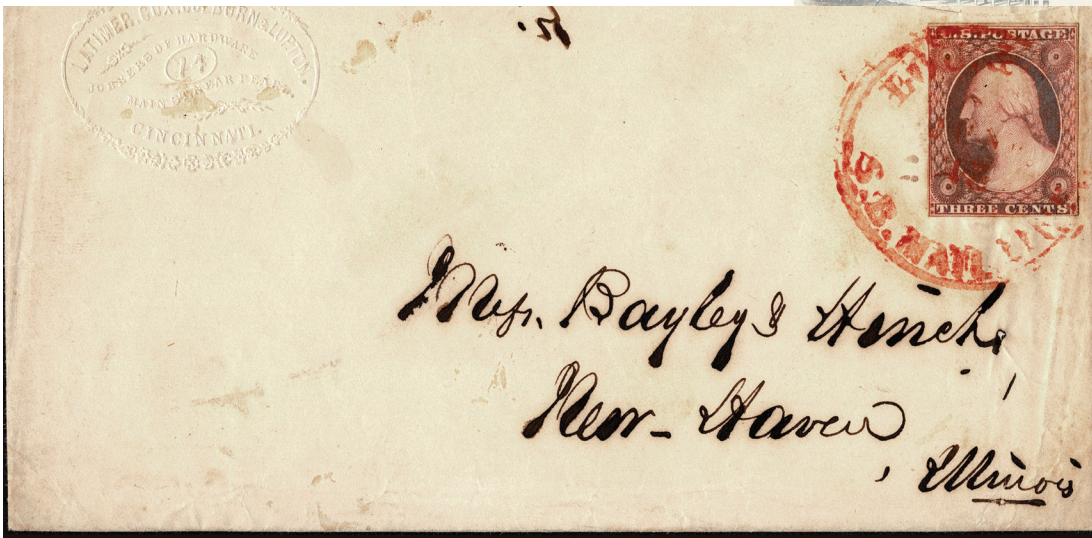 LATIMER, COLBURN & LUPTON,
JOBBERS OF HARDWARE
74
MAIN ST. NEAR PEARL
CINCINNATI.
U.S. POSTAGE
THREE CENTS
S.B. MAIL LINE
Mess. Bayley & Hinch,
New-Haven
, Illinois